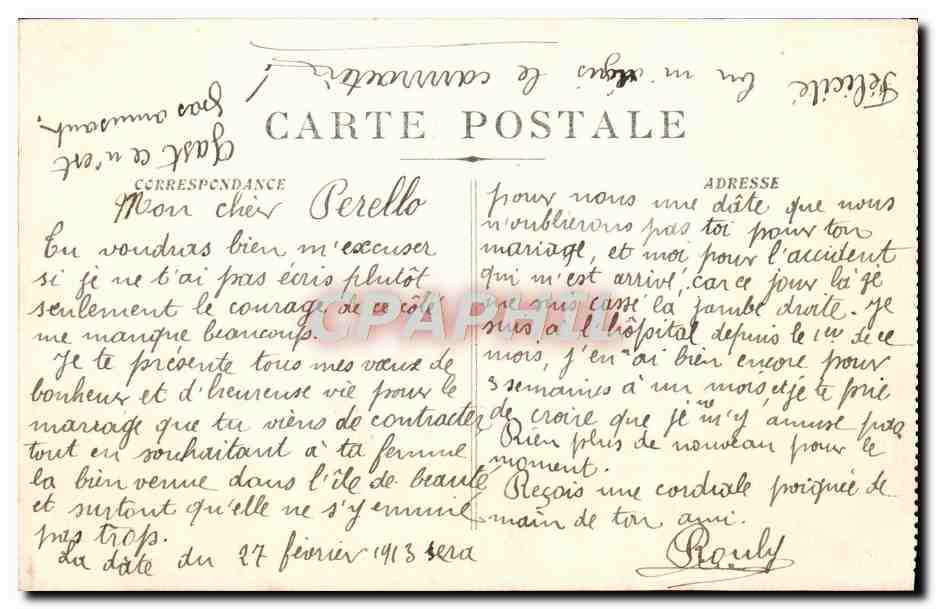 CARTE POSTALE
CORRESPONDANCE
Mon chèr Perello
Tu voudras bien m'excuser
si je ne t'ai pas écris plutôt
seulement le courage de ce côté
me manque beaucoup.
Je te présente tous mes vœux de
bonheur et d'heureuse vie pour le
marriage que tu viens de contracter
tout en souhaitant à ta femme
la bien venue dans l'île de beauté
et surtout qu'elle ne s'y ennuie
pas trop.
La dâte du 27 février 1913 sera
ADRESSE
pour nous une dâte que nous
n'oublierons pas toi pour ton
mariage, et moi pour l'accident
qui m'est arrivé, car ce jour là je
me suis cassé la jambe droite. Je
suis à l'hôpital depuis le 1er de ce
mois, j'en ai bien encore pour
3 semaines à un mois, et je te prie
de croire que je m'y amuse pas
Rien plus de nouveau pour le
moment.
Reçois une cordiale poignée de
main de ton ami.
Rouly
Félicité le
ce n'est
pas amusant.
CPAPHIL